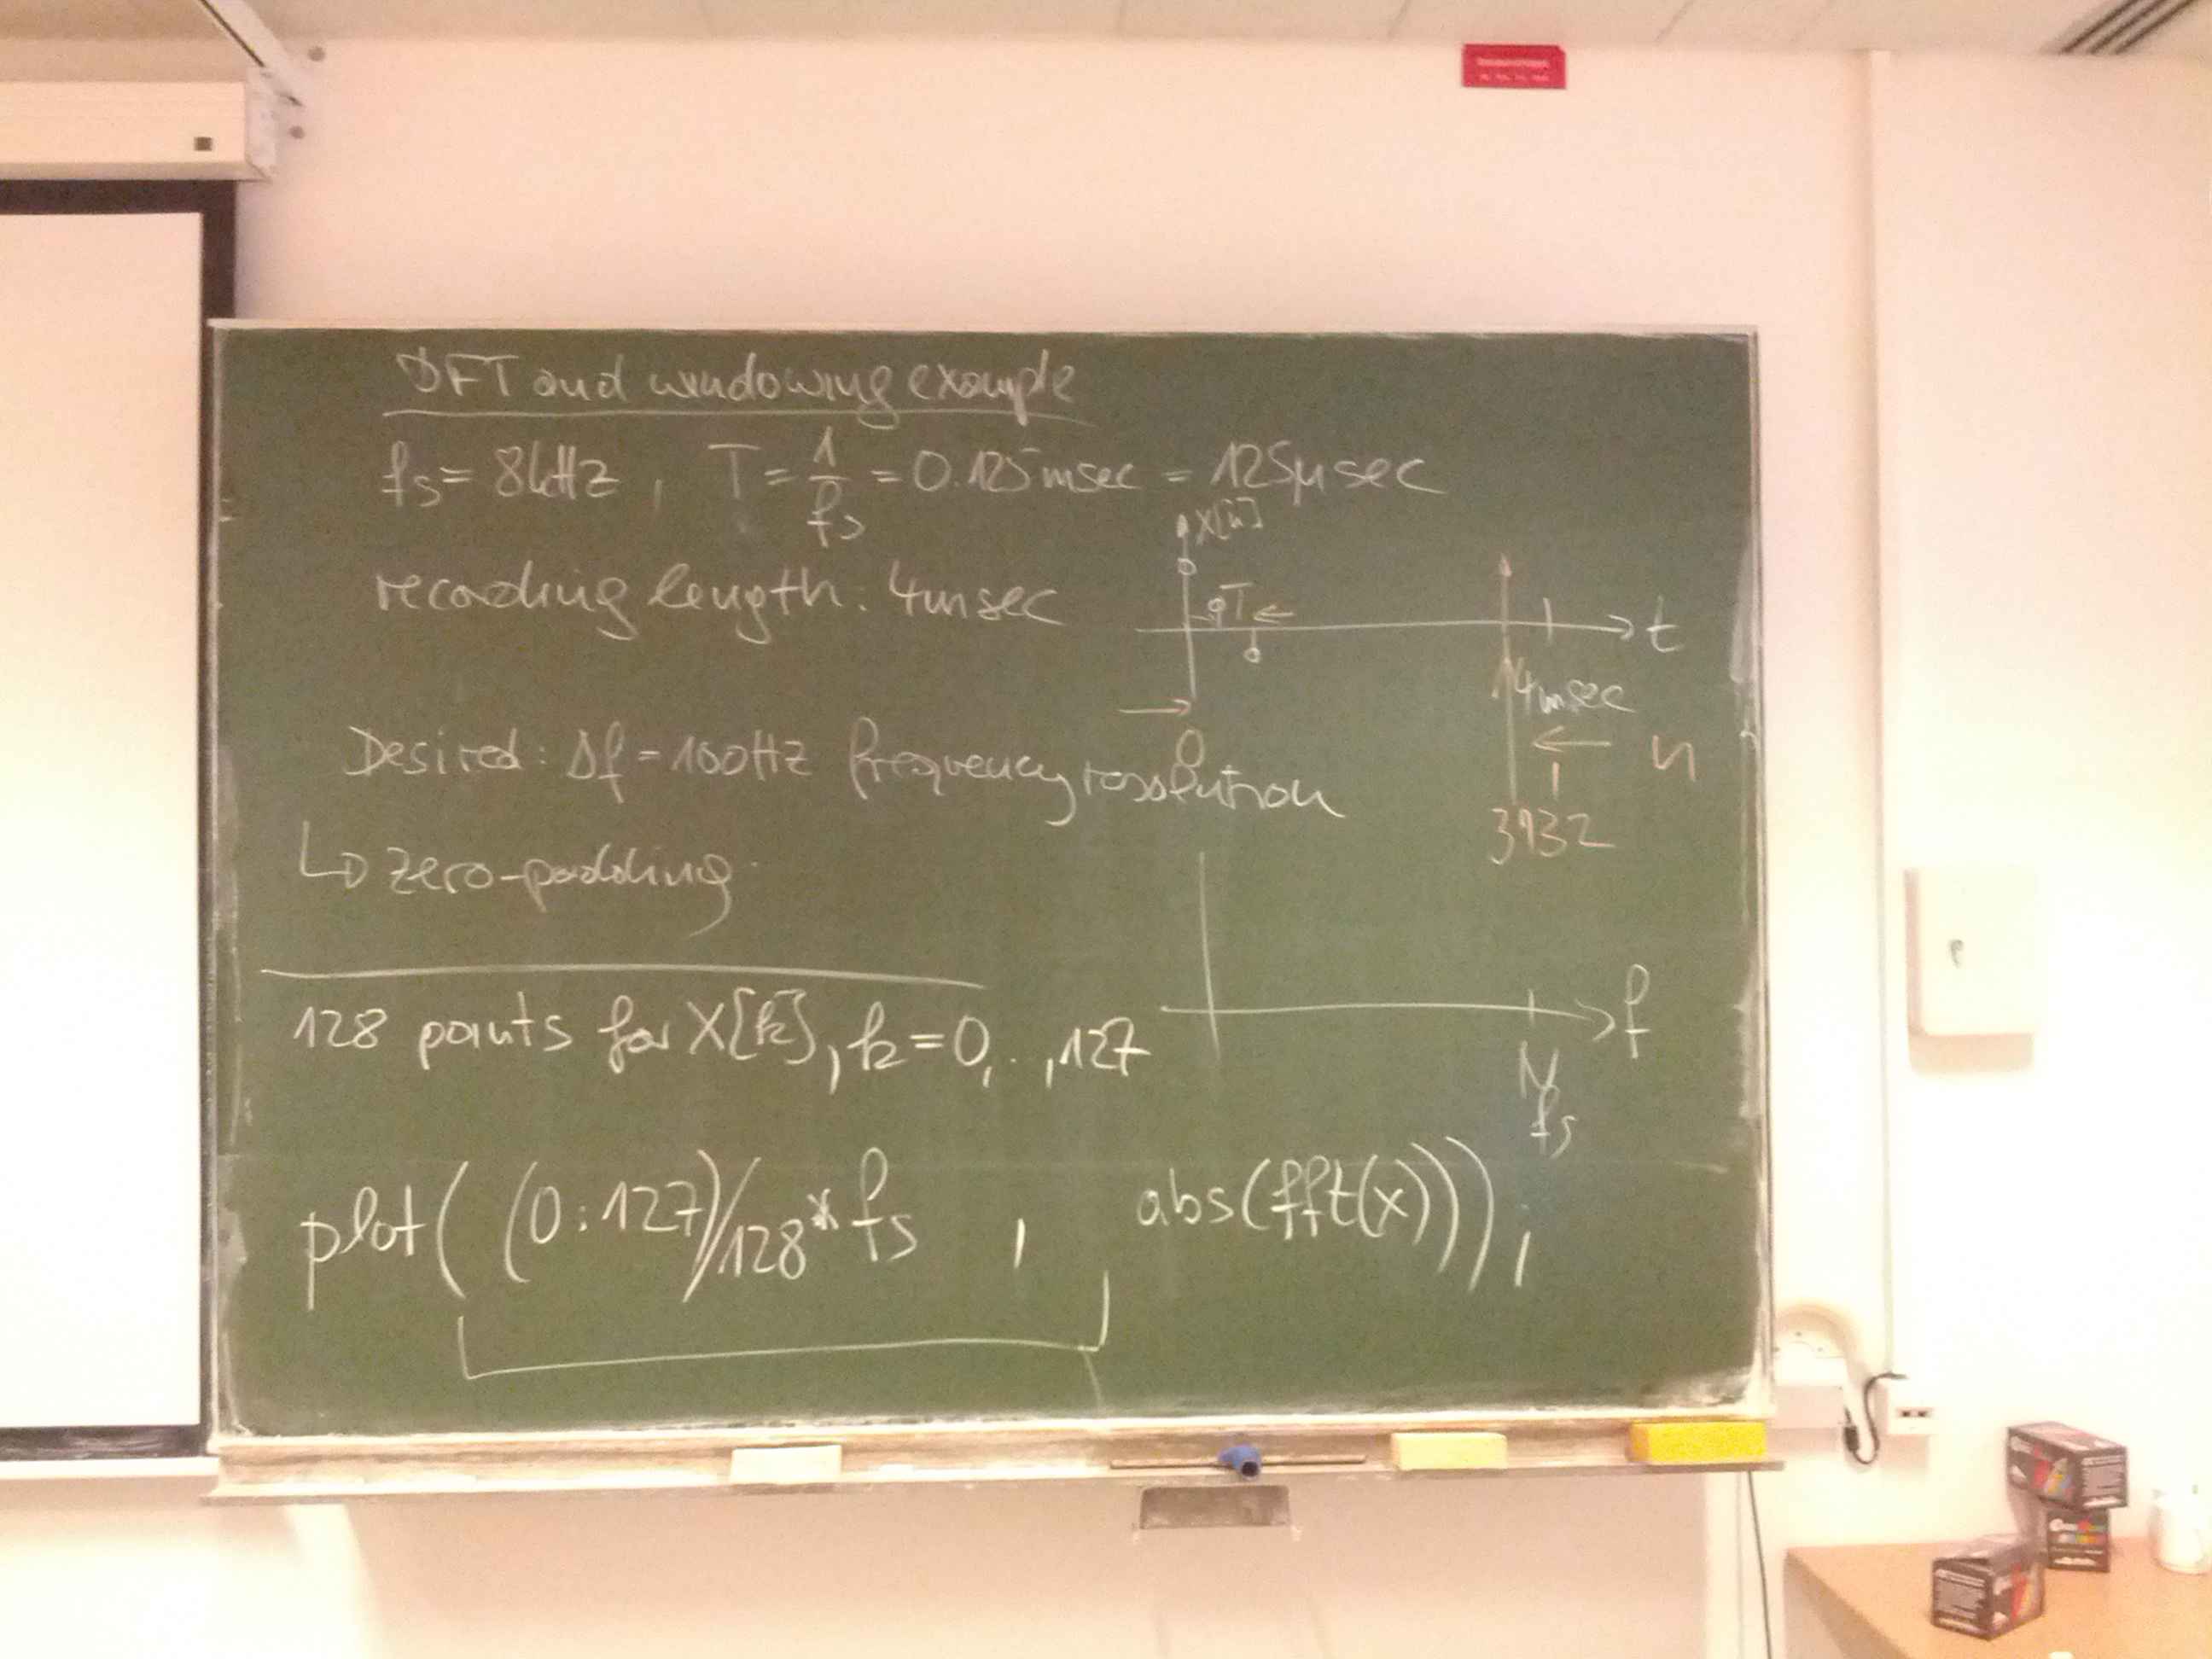 DFT and windowing example
fs = 8kHz, T = 1/fs = 0.125msec = 125μsec
x[n]
recording length: 4msec
T
t
4msec
Desired: Δf = 100Hz frequency resolution
0
n
31 32
↳ zero-padding
128 points for X[k], k=0,..,127
f
N
fs
plot( (0:127)/128*fs , abs(fft(x)));